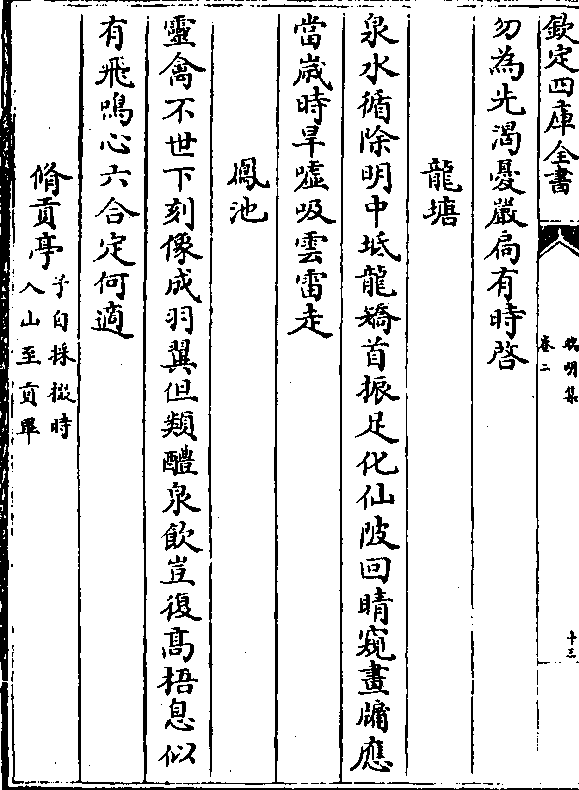 欽定四庫全書
端明集
卷二
十三
勿為先渴憂嚴扃有時啓
龍塘
泉水循除明中坻龍矯首振足化仙陂回晴窺畫牖應
當歲時旱噓吸雲雷走
鳳池
靈禽不世下刻像成羽翼但類醴泉飲豈復髙梧息似
有飛鳴心六合定何適
脩貢亭
予自採掇時
入山至貢畢